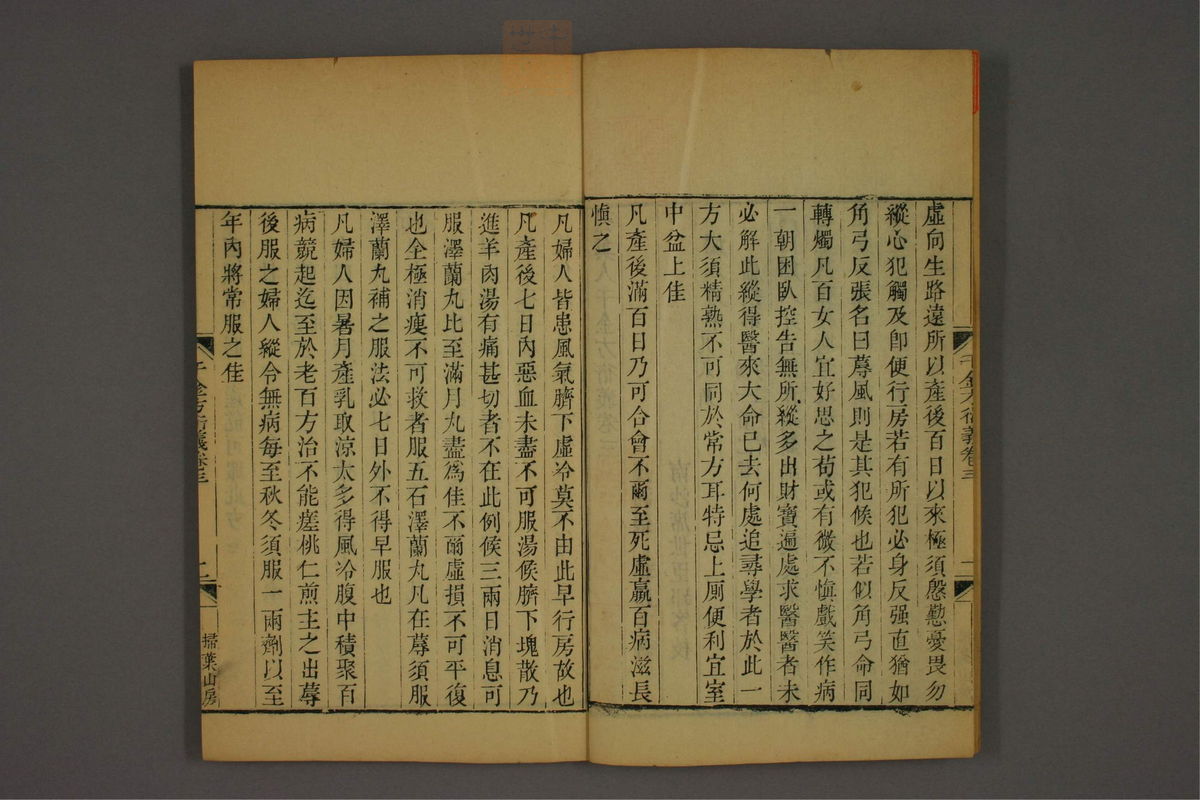 千金方衍義卷三
二
虛向生路遠所以產後百日以來極須慇懃憂畏勿
縱心犯觸及卽便行房若有所犯必身反强直猶如
角弓反張名曰蓐風則是其犯候也若似角弓命同
轉燭凡百女人宜好思之苟或有微不愼戲笑作病
一朝困臥控告無所縱多出財寶遍處求醫醫者未
必解此縱得醫來大命已去何處追尋學者於此一
方大須精熟不可同於常方耳特忌上厠便利宜室
中盆上佳
凡產後滿百日乃可合會不爾至死虛羸百病滋長
愼之
凡婦人皆患風氣臍下虛冷莫不由此早行房故也
凡產後七日內惡血未盡不可服湯候臍下塊散乃
進羊肉湯有痛甚切者不在此例候三兩日消息可
服澤蘭丸比至滿月丸盡爲佳不爾虛損不可平復
也全極消瘦不可救者服五石澤蘭丸凡在蓐須服
澤蘭丸補之服法必七日外不得早服也
凡婦人因暑月產乳取涼太多得風冷腹中積聚百
病競起迄至於老百方治不能瘥桃仁煎主之出蓐
後服之婦人縱令無病每至秋冬須服一兩劑以至
年內將常服之佳
千金方衍義卷三
二
掃葉山房